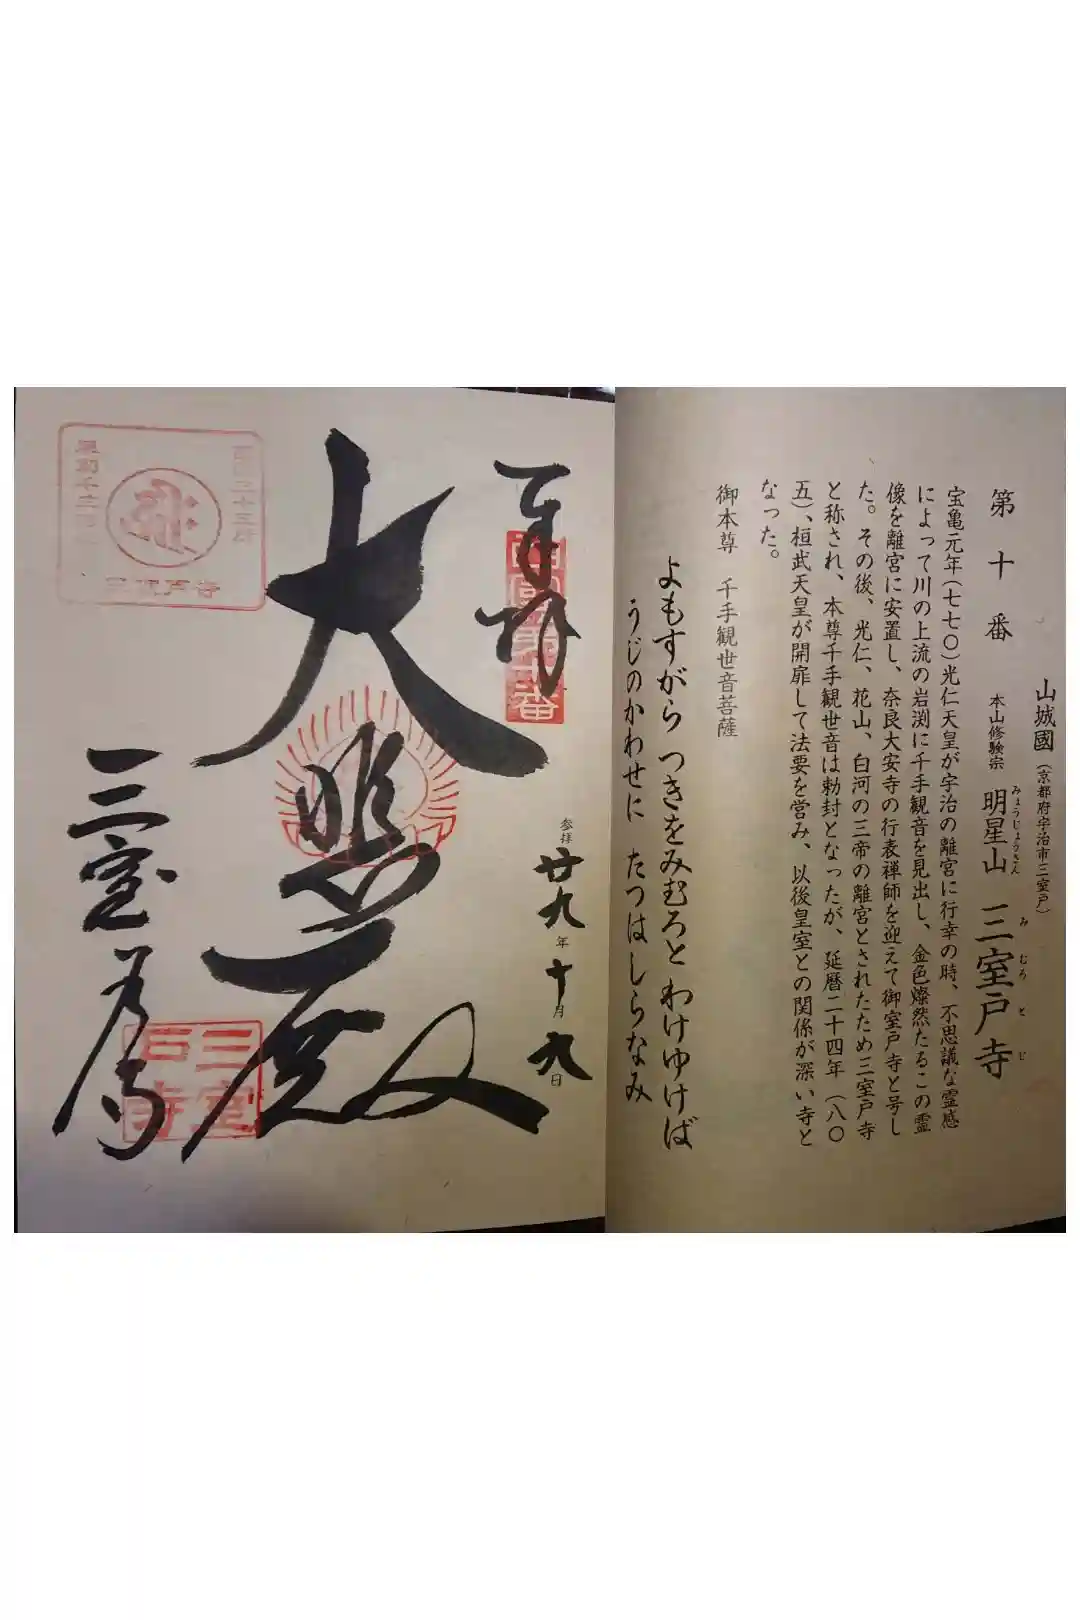 山城國（京都府宇治市三室戸）
第十番 本山修験宗 明星山 三室戸寺
みょうじょうさん み むろ と じ
宝亀元年（七七〇）光仁天皇が宇治の離宮に行幸の時、不思議な霊感
によって川の上流の岩渕に千手観音を見出し、金色燦然たるこの霊
像を離宮に安置し、奈良大安寺の行表禅師を迎えて御室戸寺と号し
た。その後、光仁、花山、白河の三帝の離宮とされたため三室戸寺
と称され、本尊千手観世音は勅封となったが、延暦二十四年（八〇
五）、桓武天皇が開扉して法要を営み、以後皇室との関係が深い寺と
なった。
御本尊 千手観世音菩薩
よもすがら つきをみむろと わけゆけば
うじのかわせに たつはしらなみ
奉拝
参拝 廿九年 十月 九日
大悲殿
三室戸寺
三室
戸寺
三室戸寺